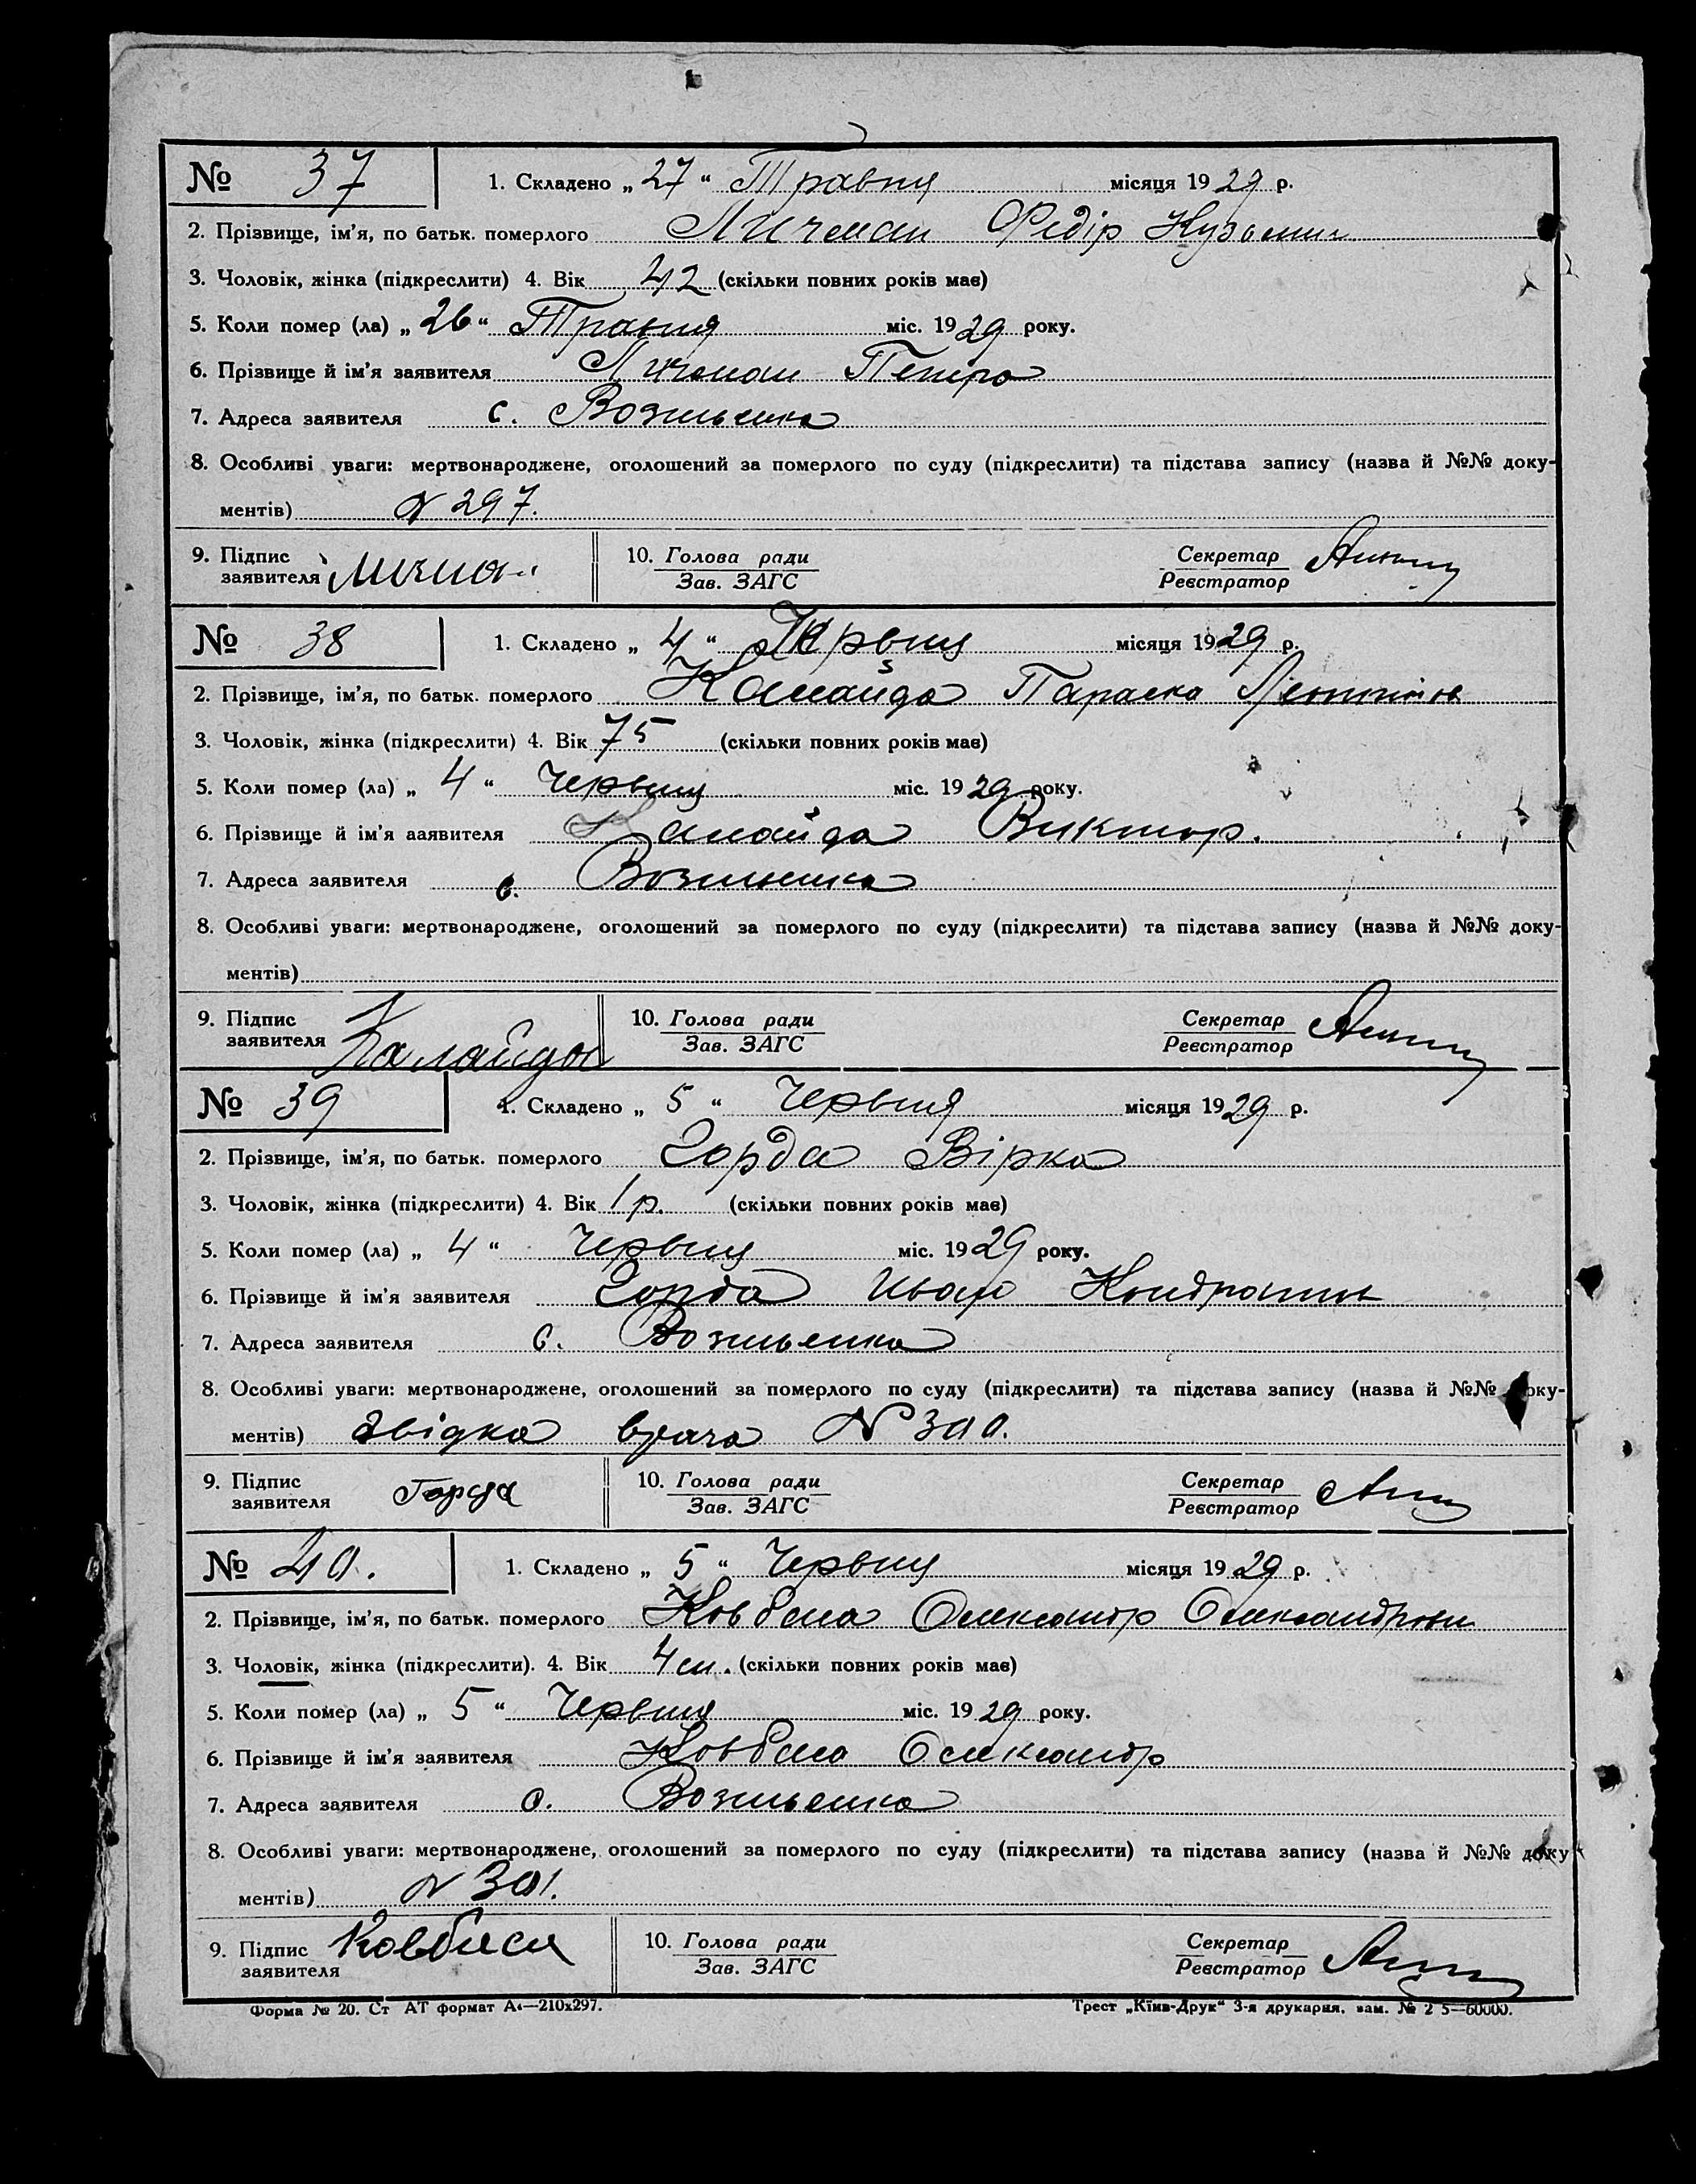 № 37
1. Складено „ 27 “ Травня місяця 1929 р.
2. Прізвище, ім'я, по батьк. померлого Личман Федір Кузьмич
3. Чоловік, жінка (підкреслити) 4. Вік 42 (скільки повних років має)
5. Коли помер (ла) „ 26 “ Травня міс. 1929 року.
6. Прізвище й ім'я заявителя Личман Петро
7. Адреса заявителя с.
8. Особливі уваги: мертвонароджене, оголошений за померлого по суду (підкреслити) та підстава запису (назва й №№ доку-
ментів) N 297.
9. Підпис
заявителя
10. Голова ради
Зав. ЗАГС
Секретар
Реєстратор
№ 38
1. Складено „ 4 “ Червня місяця 1929 р.
2. Прізвище, ім'я, по батьк. померлого Калайда Параска
3. Чоловік, жінка (підкреслити) 4. Вік 75 (скільки повних років має)
5. Коли помер (ла) „ 4 “ Червня міс. 1929 року.
6. Прізвище й ім'я аaявителя Калайда Виктор.
7. Адреса заявителя с.
8. Особливі уваги: мертвонароджене, оголошений за померлого по суду (підкреслити) та підстава запису (назва й №№ доку-
ментів)
9. Підпис
заявителя Калайда
10. Голова ради
Зав. ЗАГС
Секретар
Реєстратор
№ 39
1. Складено „ 5 “ Червня місяця 1929 р.
2. Прізвище, ім'я, по батьк. померлого Горда Вірка
3. Чоловік, жінка (підкреслити) 4. Вік 1 р. (скільки повних років має)
5. Коли помер (ла) „ 4 “ Червня міс. 1929 року.
6. Прізвище й ім'я заявителя Горда Иван
7. Адреса заявителя с.
8. Особливі уваги: мертвонароджене, оголошений за померлого по суду (підкреслити) та підстава запису (назва й №№ доку-
ментів) Звідка врача N 300.
9. Підпис
заявителя Горда
10. Голова ради
Зав. ЗАГС
Секретар
Реєстратор
№ 40.
1. Складено „ 5 “ Червня місяця 1929 р.
2. Прізвище, ім'я, по батьк. померлого Ковбаса Олександр Олександрови
3. Чоловік, жінка (підкреслити). 4. Вік 4 м. (скільки повних років має)
5. Коли помер (ла) „ 5 “ Червня міс. 1929 року.
6. Прізвище й ім'я заявителя Ковбаса Олександр
7. Адреса заявителя с.
8. Особливі уваги: мертвонароджене, оголошений за померлого по суду (підкреслити) та підстава запису (назва й №№ доку
ментів) N 301.
9. Підпис
заявителя Ковбаса
10. Голова ради
Зав. ЗАГС
Секретар
Реєстратор
Форма № 20. Ст АТ формат А4—210х297.
Трест „Київ-Друк“ 3-я друкарня, зам. № 2 5—60000.